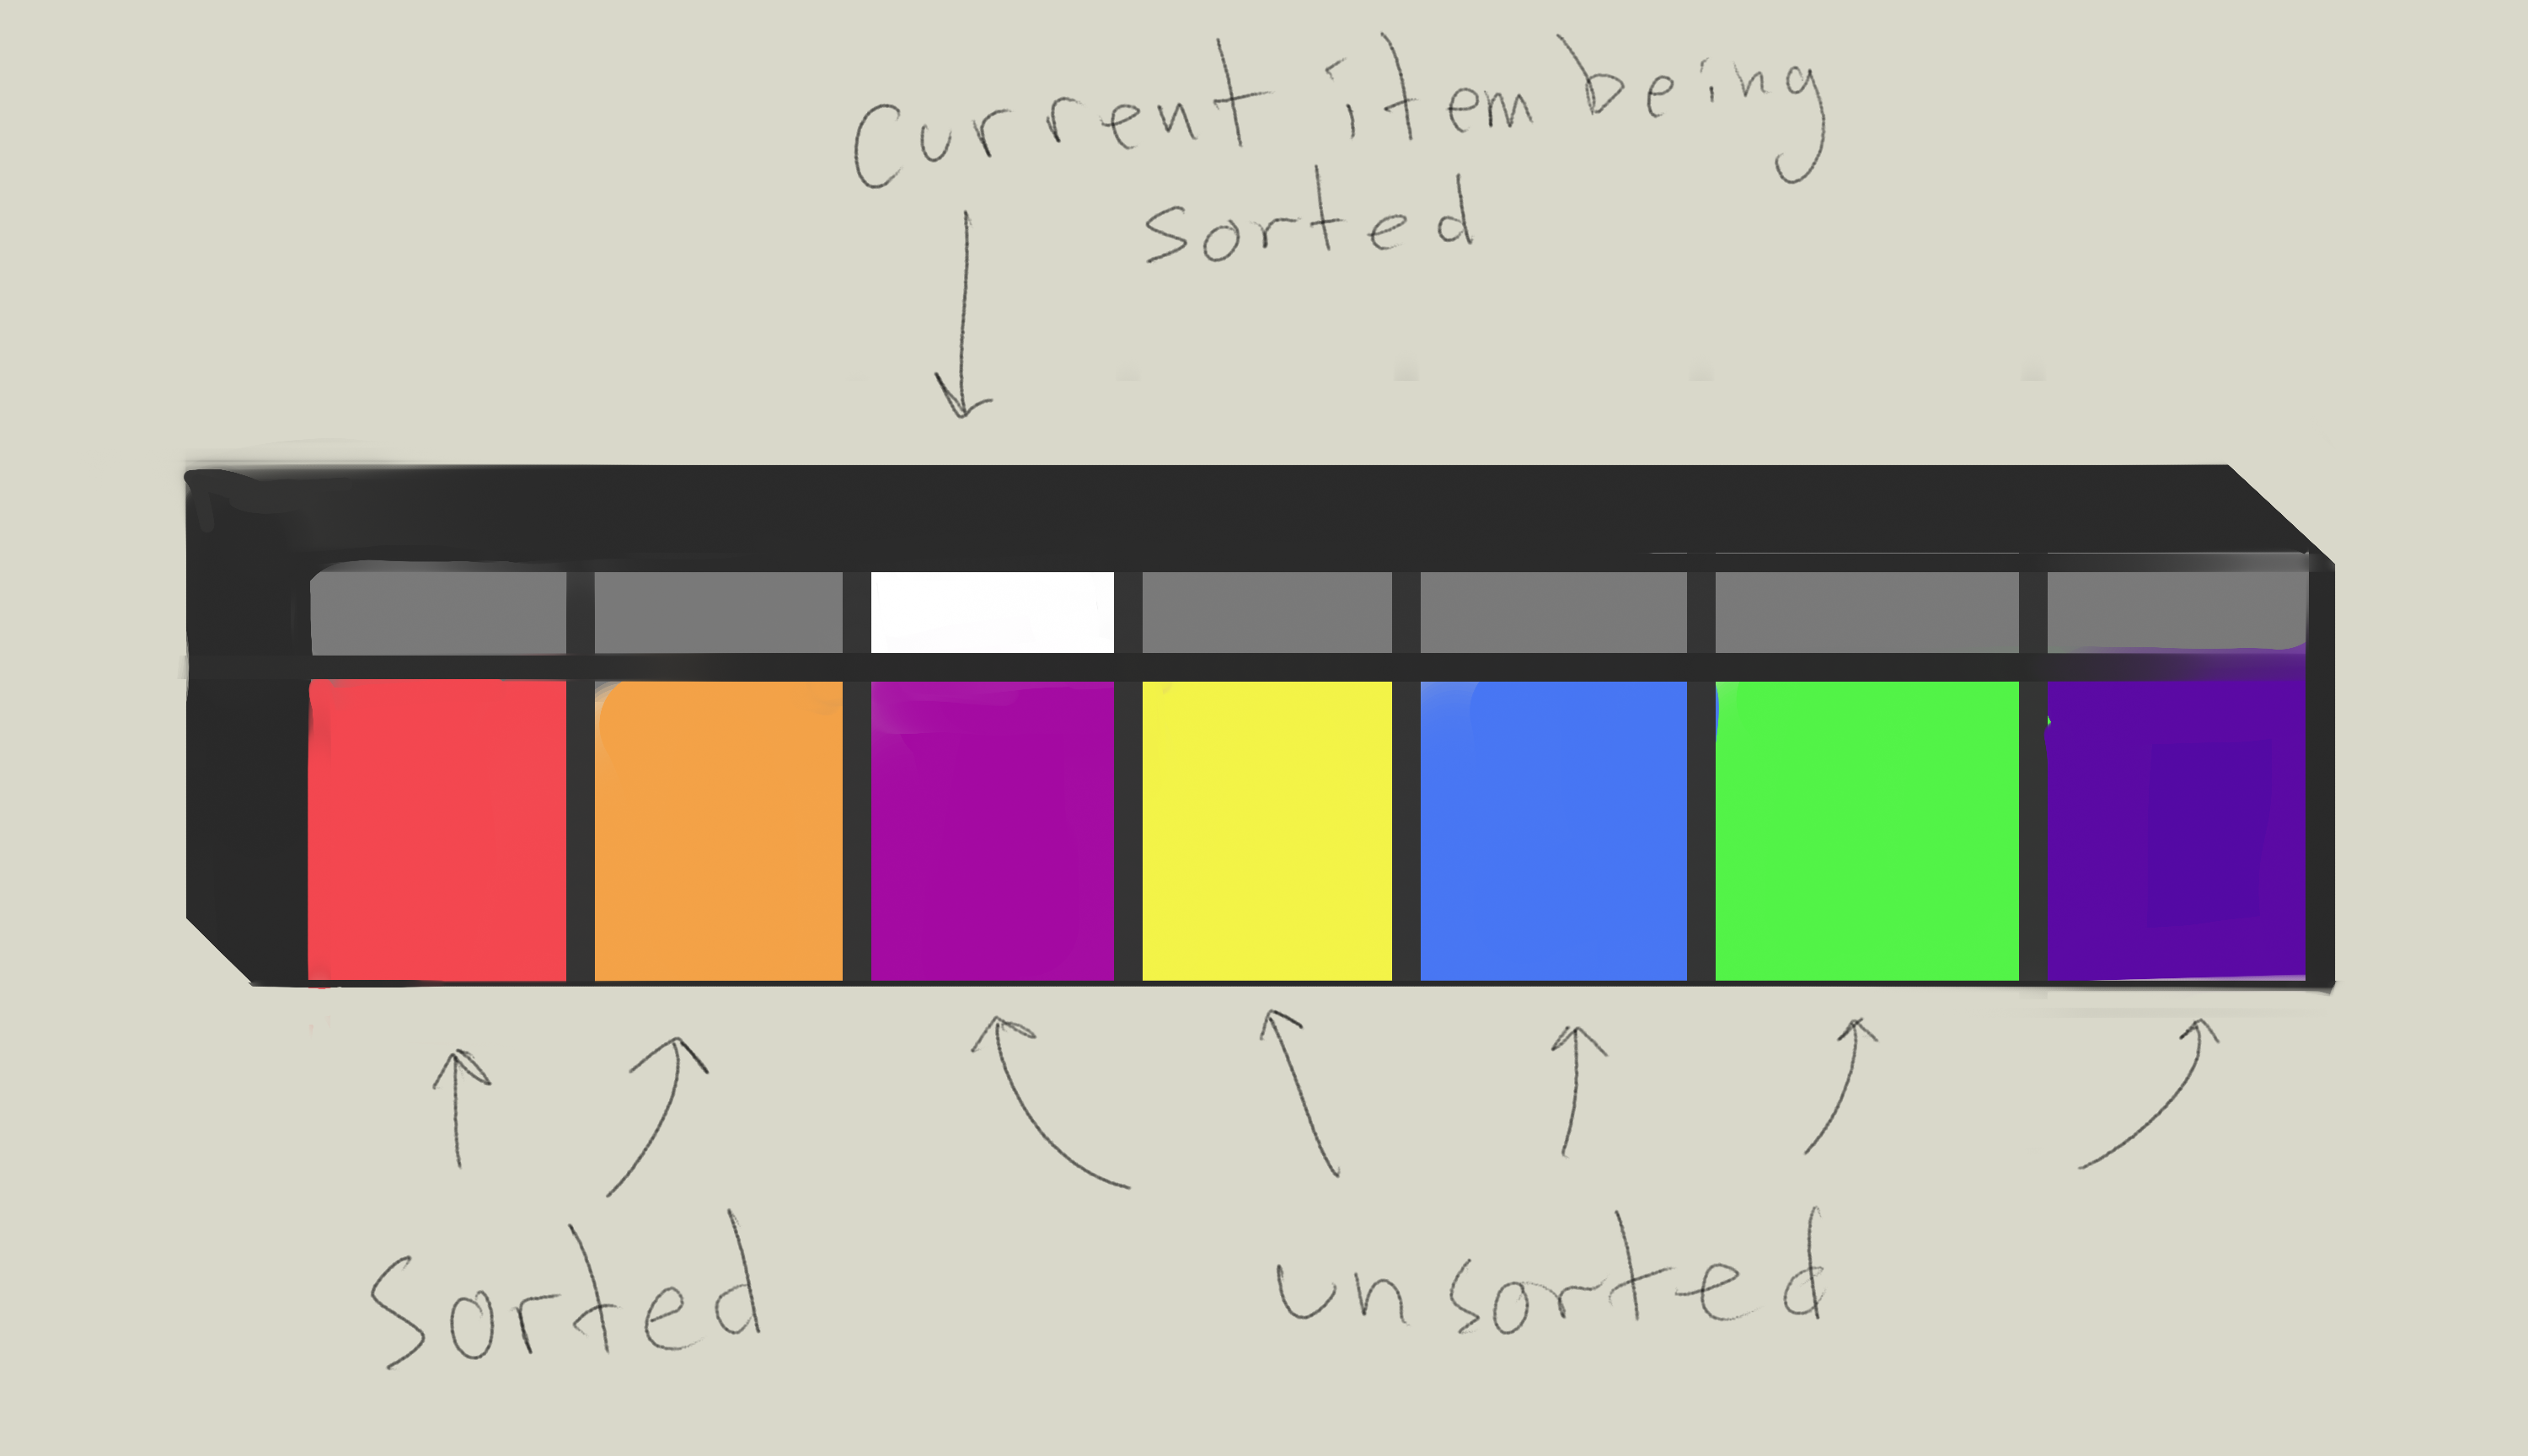 Current item being
sorted
Sorted
unsorted